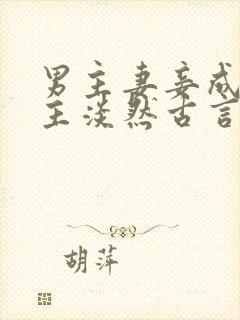 男主妻妾成
主淡然古言
胡萍